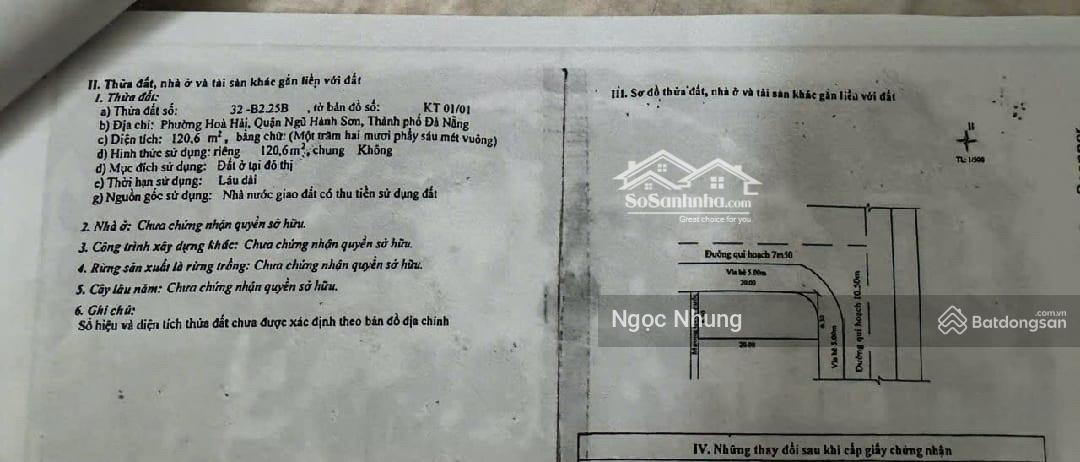 II. Thửa đất, nhà ở và tài sản khác gắn liền với đất
1. Thửa đất:
a) Thửa đất số: 32 -B2.25B , tờ bản đồ số: KT 01/01
b) Địa chỉ: Phường Hoà Hải, Quận Ngũ Hành Sơn, Thành phố Đà Nẵng
c) Diện tích: 120,6 m², bằng chữ: (Một trăm hai mươi phẩy sáu mét vuông)
d) Hình thức sử dụng: riêng 120,6m², chung Không
đ) Mục đích sử dụng: Đất ở tại đô thị
e) Thời hạn sử dụng: Lâu dài
g) Nguồn gốc sử dụng: Nhà nước giao đất có thu tiền sử dụng đất
2. Nhà ở: Chưa chứng nhận quyền sở hữu.
3. Công trình xây dựng khác: Chưa chứng nhận quyền sở hữu.
4. Rừng sản xuất là rừng trồng: Chưa chứng nhận quyền sở hữu.
5. Cây lâu năm: Chưa chứng nhận quyền sở hữu.
6. Ghi chú:
Số hiệu và diện tích thửa đất chưa được xác định theo bản đồ địa chính
III. Sơ đồ thửa đất, nhà ở và tài sản khác gắn liền với đất
B
TL: 1/500
SoSanhnha.com
Great choice for you
Đường qui hoạch 7m50
Vỉa hè 5.00m
20.00
20.00
6.30
Vỉa hè 5.00m
Đường qui hoạch 10.50m
Ngọc Nhung
Batdongsan
.com.vn
IV. Những thay đổi sau khi cấp giấy chứng nhận